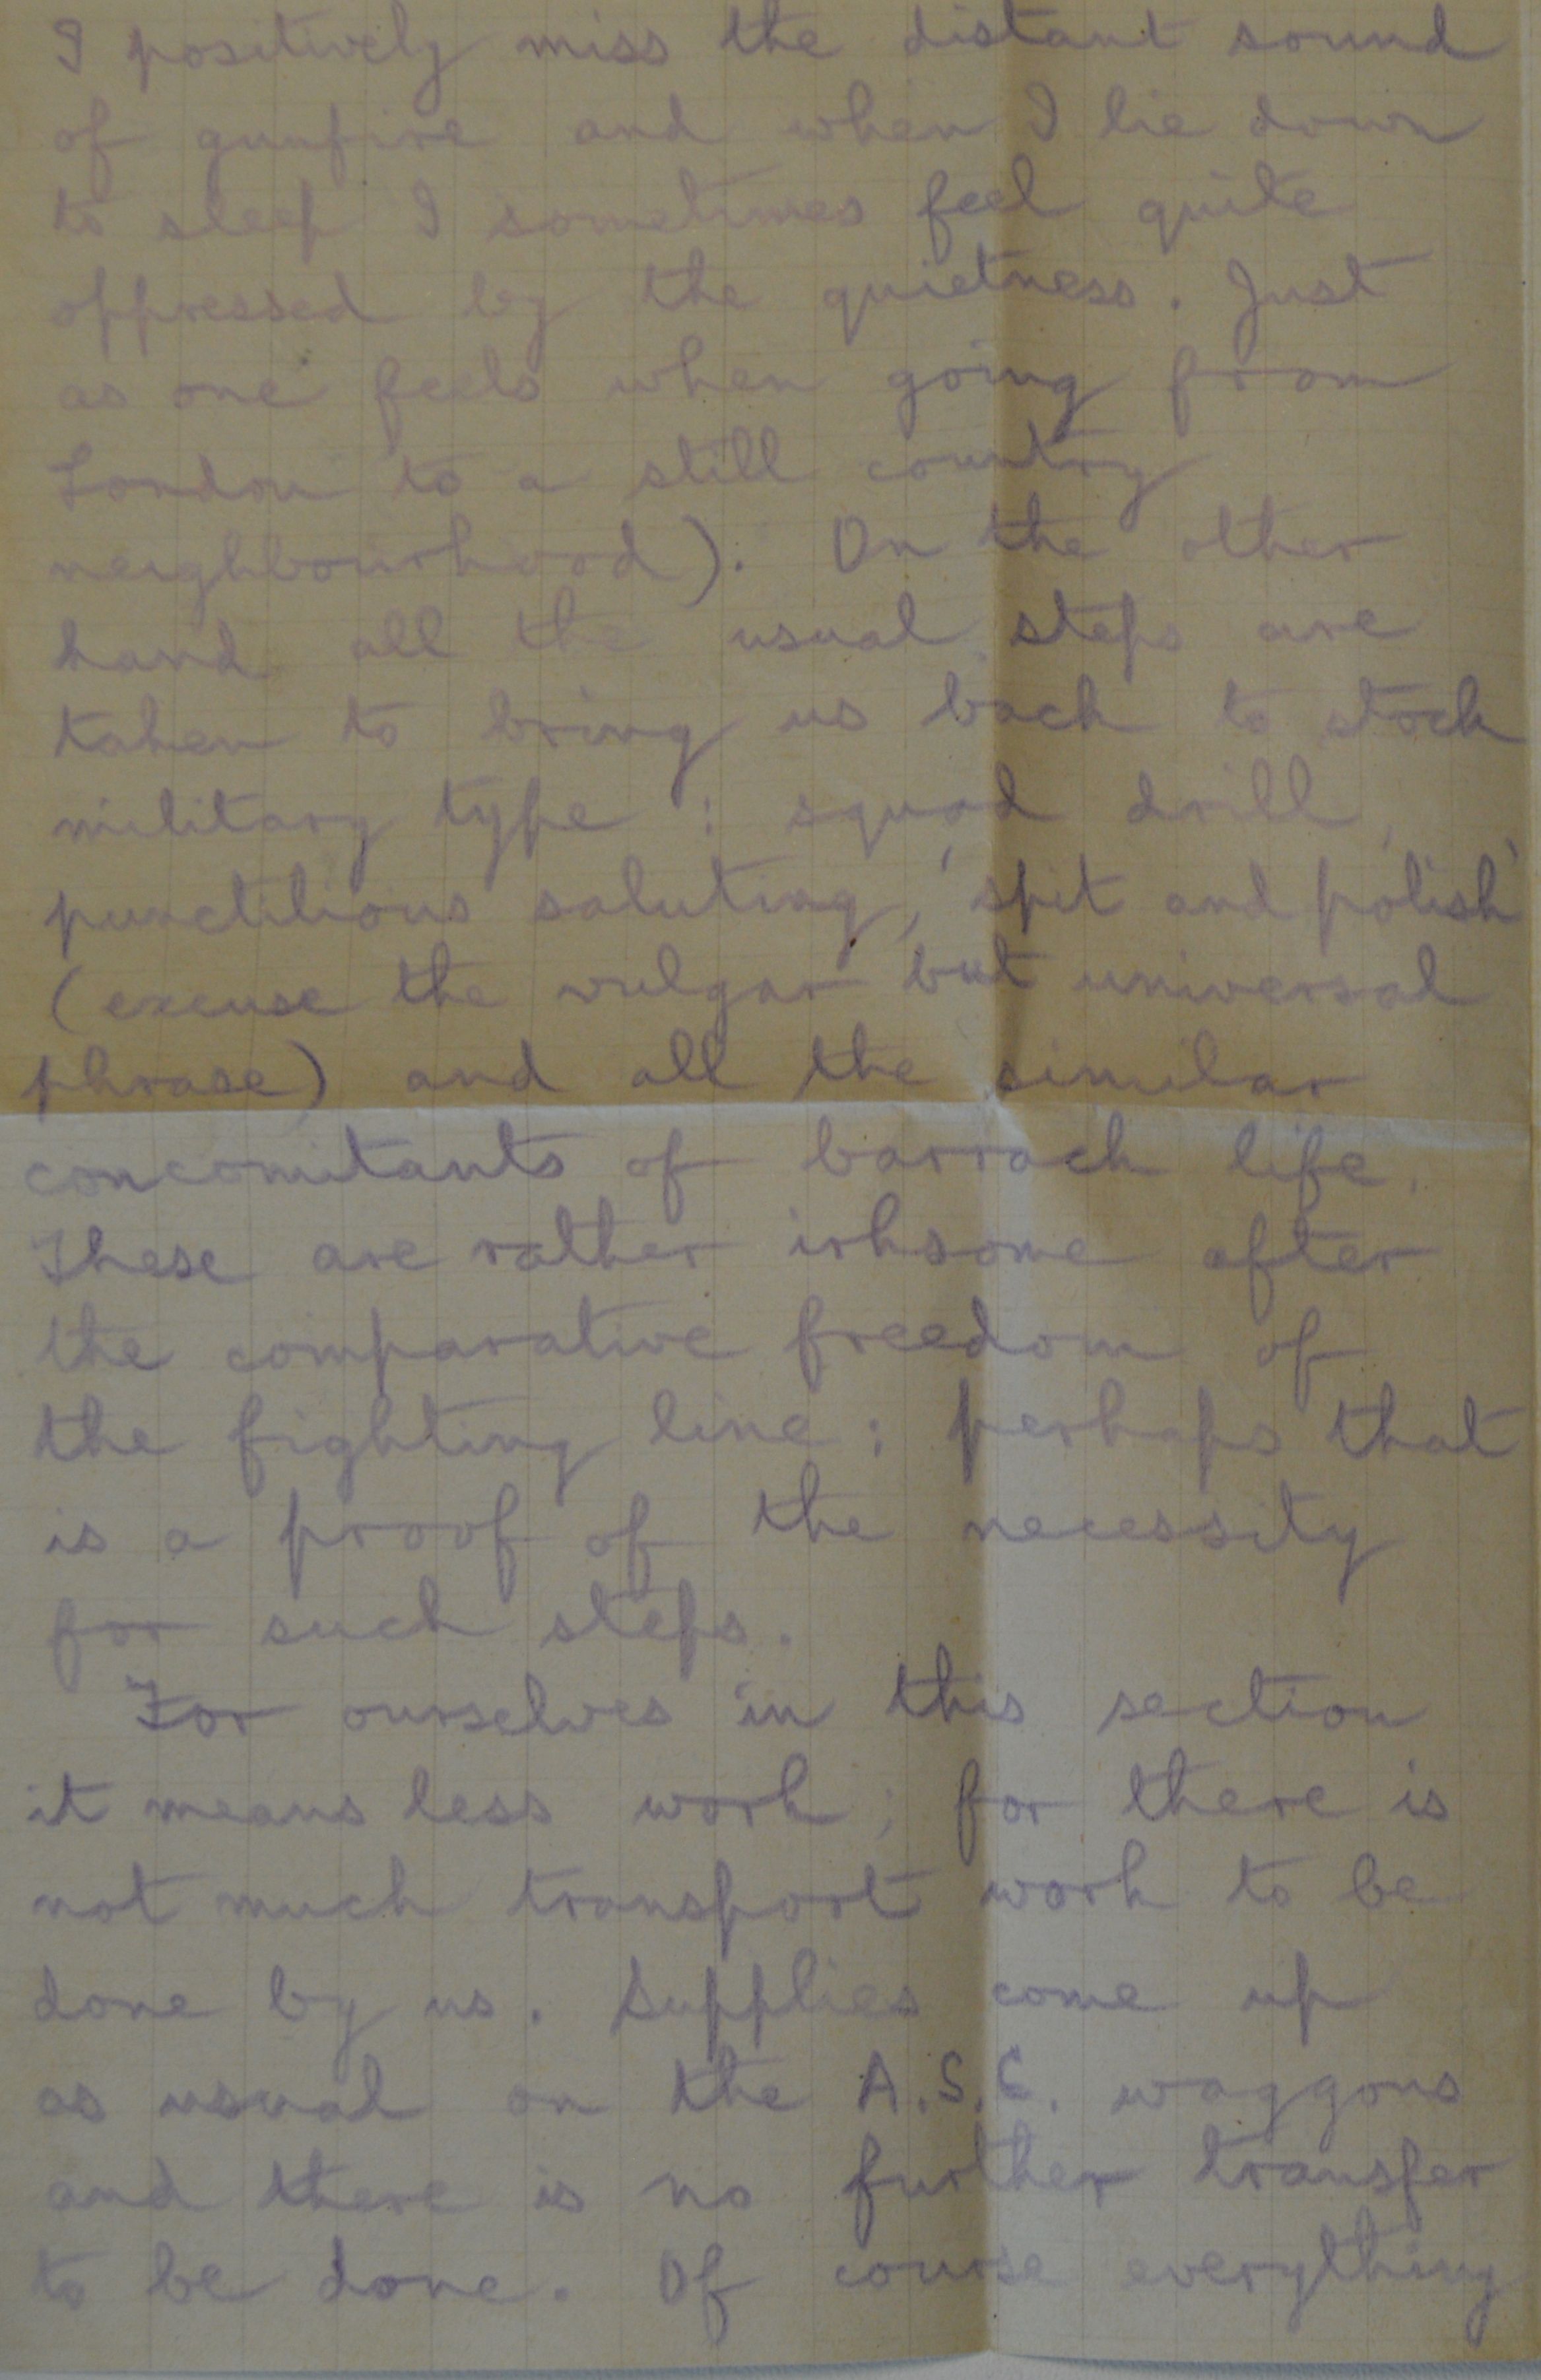 I positively miss the distant sound
of gunfire and when I lie down
to sleep I sometimes feel quite
oppressed by the quietness. Just
as one feels when going from
London to a still country
neighbourhood). On the other
hand all the usual steps are
taken to bring us back to stock
military type : squad drill,
punctilious saluting, 'spit and polish'
(excuse the vulgar but universal
phrase) and all the similar
concomitants of barrack life.
These are rather irksome after
the comparative freedom of
the fighting line ; perhaps that
is a proof of the necessity
for such steps.
For ourselves in this section
it means less work ; for there is
not much transport work to be
done by us. Supplies come up
as usual on the A.S.C. waggons
and there is no further transfer
to be done. Of course everything